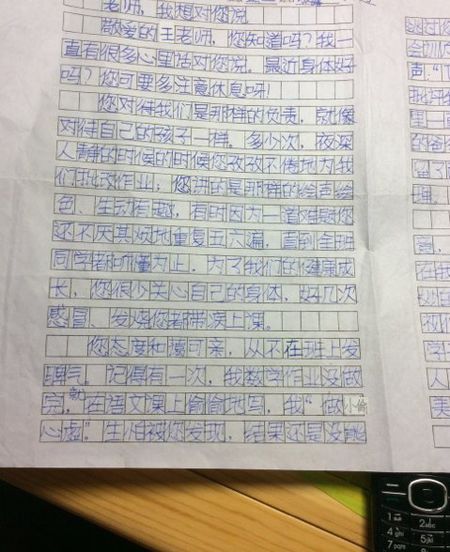 老师，我想对您说
敬爱的王老师，您知道吗？我一
直有很多心里话对您说。最近身体好
吗？您可要多注意休息呀！
您对待我们是那样的负责，就像
对待自己的孩子一样。多少次，夜深
人静的时候的时候您孜孜不倦地为我
们批改作业；您讲的是那样的绘声绘
色、生动有趣，有时因为一道难题您
还不厌其烦地重复五六遍，直到全班
同学都听懂为止。为了我们的健康成
长，您很少关心自己的身体，好几次
感冒、发烧您都带病上课。
您态度和蔼可亲，从不在班上发
脾气。记得有一次，我数学作业没做
完，就在语文课上偷偷地写，我“做小偷
心虚”生怕被您发现，结果还是没能